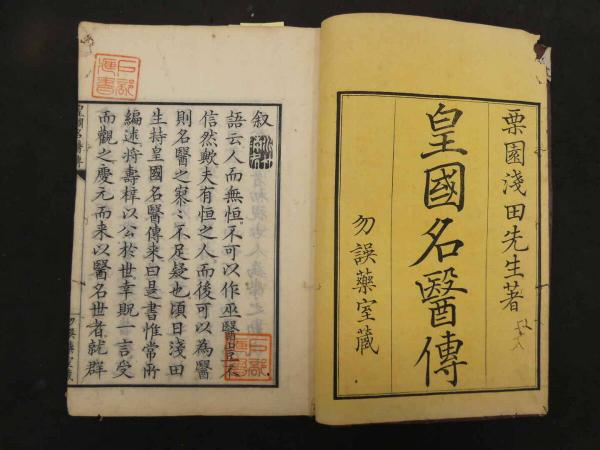 栗園淺田先生著
皇國名醫傳
勿誤藥室藏
叙
語云人而無恒不可以作巫醫豈不
信然歟夫有恒之人而後可以為醫
則名醫之寥〻不足疑也頃日淺田
生持皇國名醫傳来曰是書惟常所
編述将壽梓以公於世幸貺一言受
而觀之慶元而来以醫名世者就群
皇國名醫傳
勿誤藥室藏